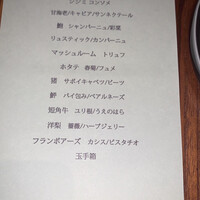 シジミ コンソメ
甘海老/キャビア/サンネクテール
鮑 シャンパーニュ/
リュスティック/カンパーニュ
マッシュルーム トリュフ
ホタテ 春菊/フュメ
猪 サボイキャベツ/ビーツ
鮃 パイ包み/ベアルネーズ
短角牛 ユリ根/うえのはち
洋梨 薔薇/ハーブジェリー
フランボアーズ カシス/ピスタチオ
玉手箱